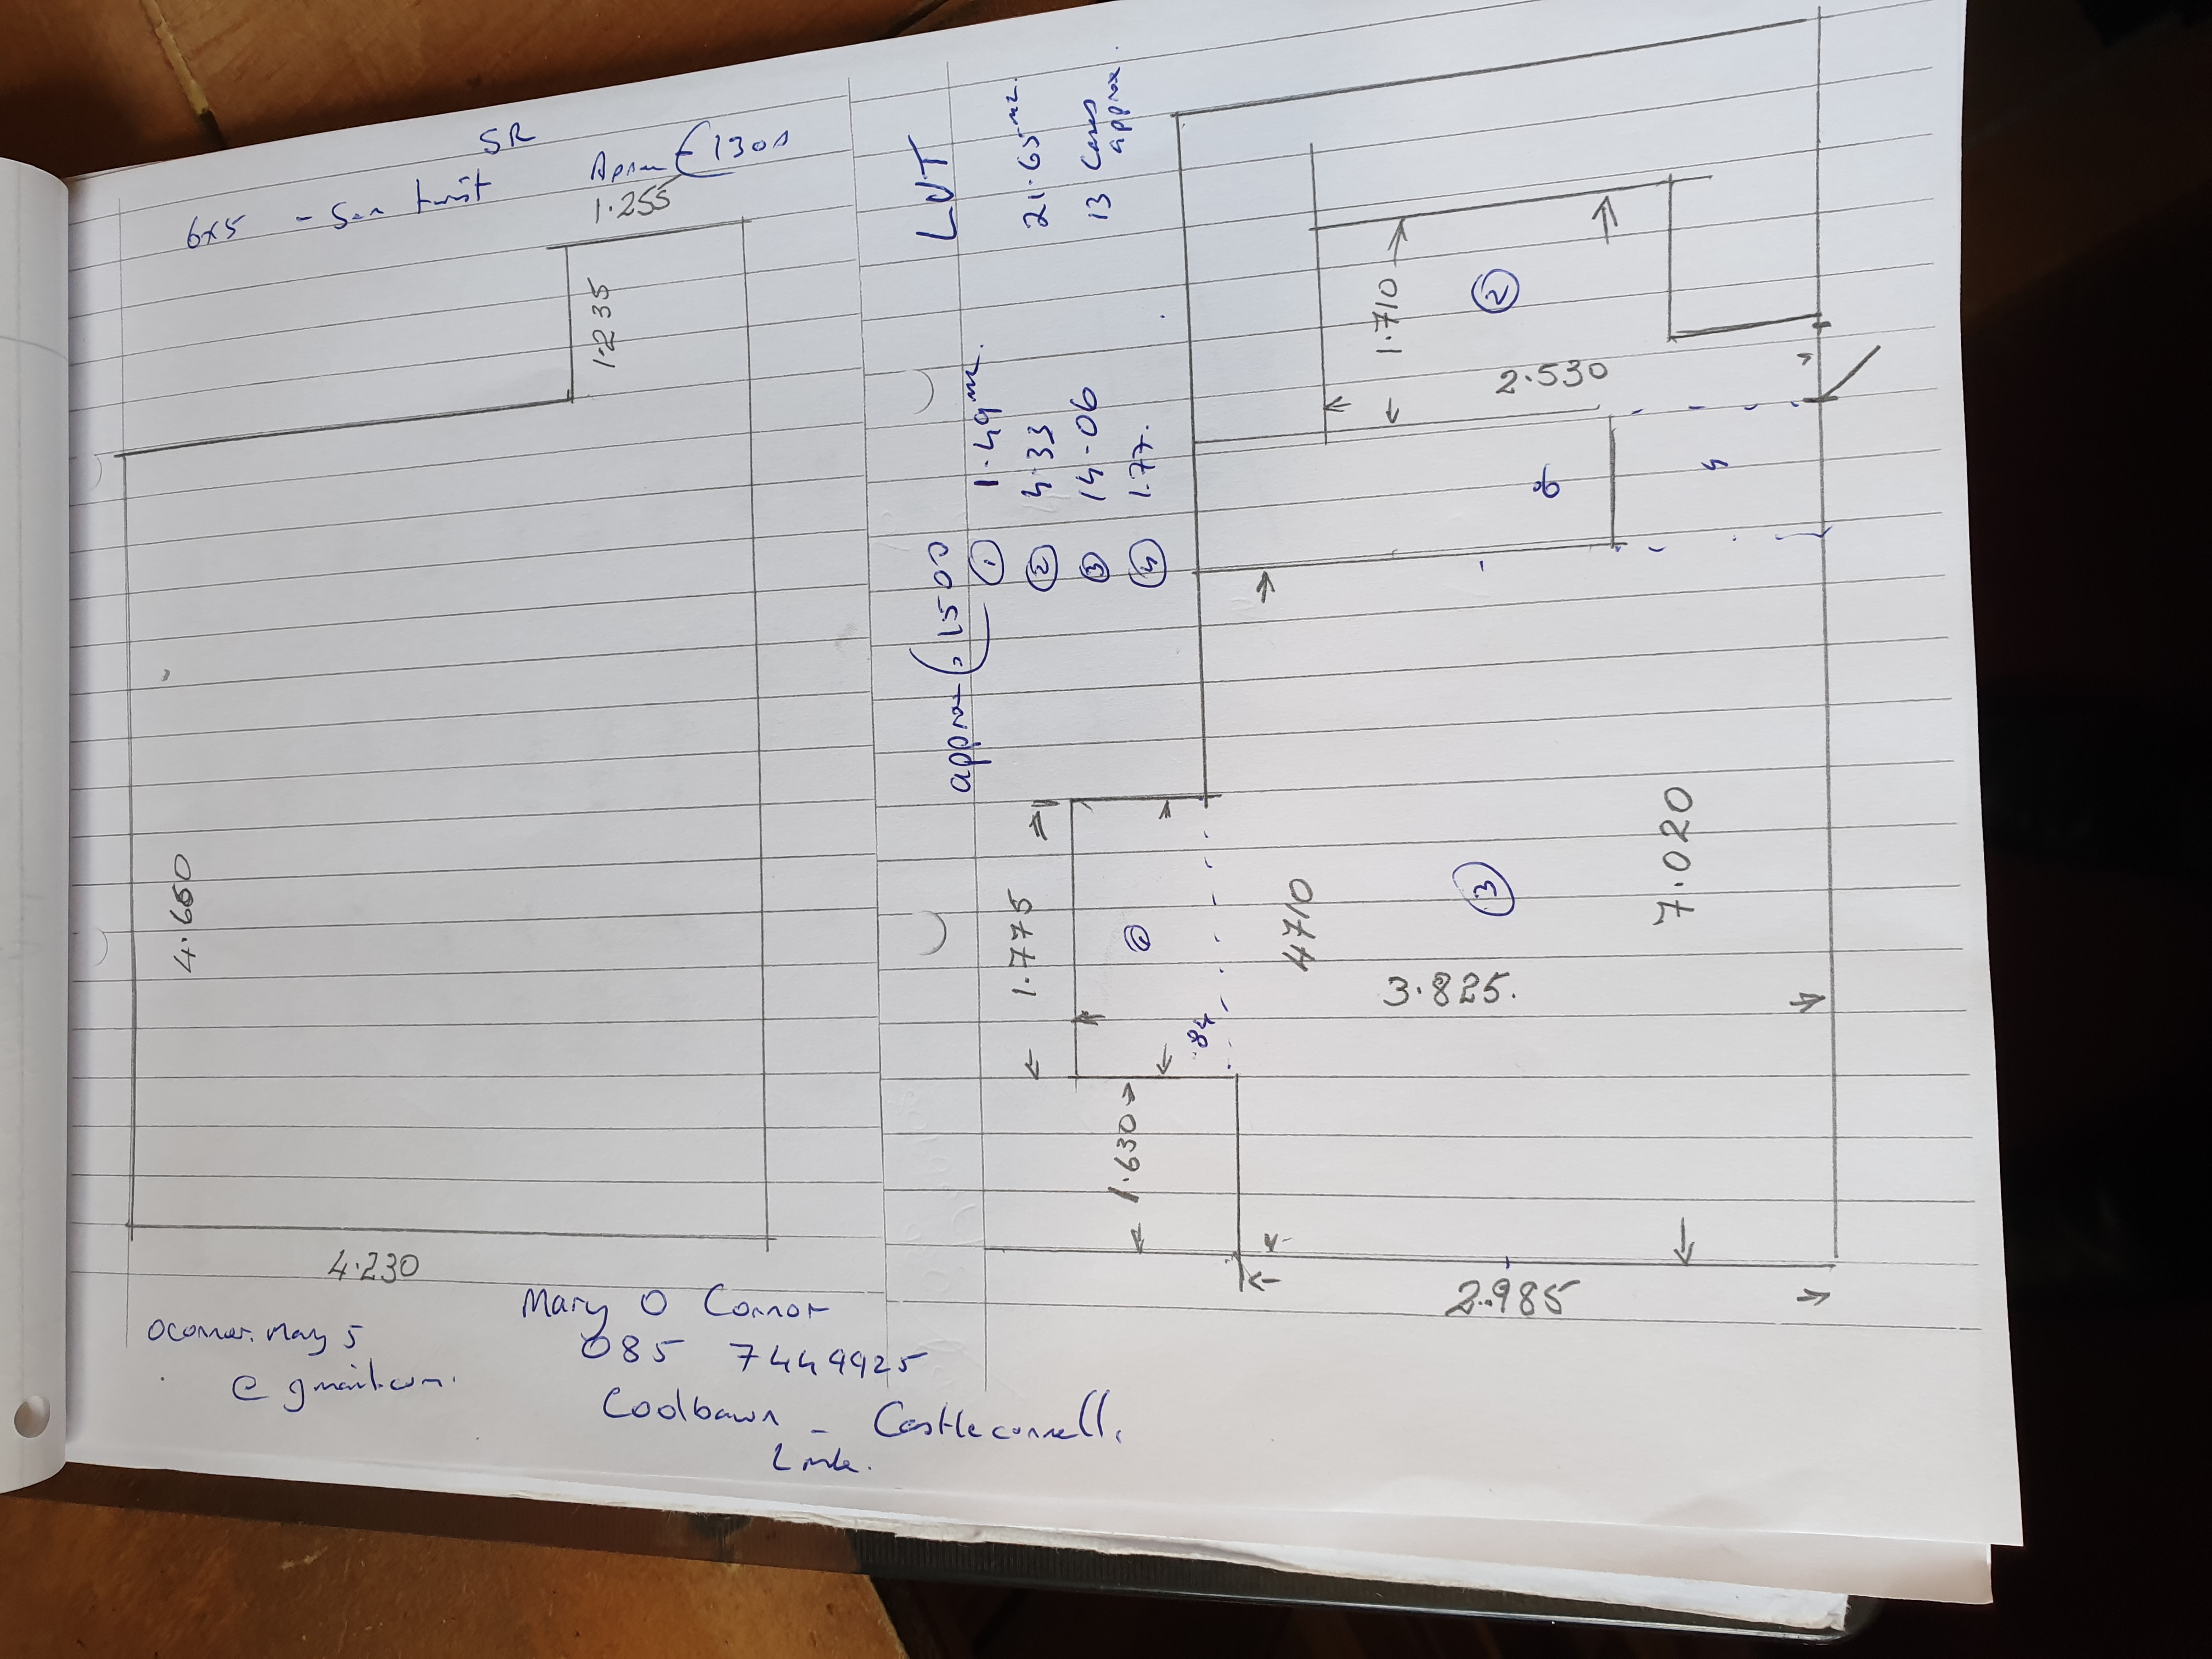 SR
6x5 - Sen twist Aprox €1300
1.255
1.235
4.660
4.230
Mary O Connor
oconnor.mary5
@gmail.com.
085 7449925
Coolbawn - Castleconnell,
LVT
21.65m2.
13 Cases
approx
approx €1500
① 1.49m2.
② 4.33
③ 14.06
④ 1.77.
1.710
②
2.530
4
1.775
.84
4710
③
3.825.
7.020
1.630
2.985